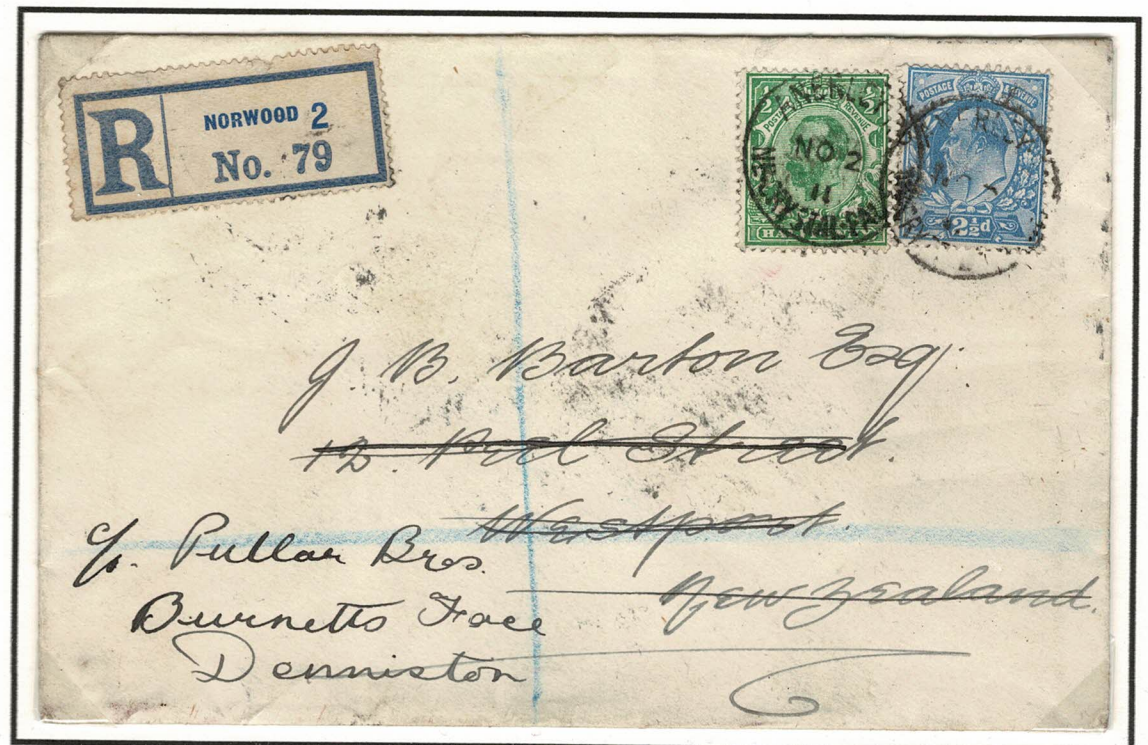 R
NORWOOD 2
No. 79
POSTAGE REVENUE
ANERLEY
NO 2
11
POSTAGE & REVENUE
2½d
J B. Barton Esq.
12. Peel Street.
Westport.
New Zealand.
c/o. Pullar Bros.
Burnetts Face
Denniston